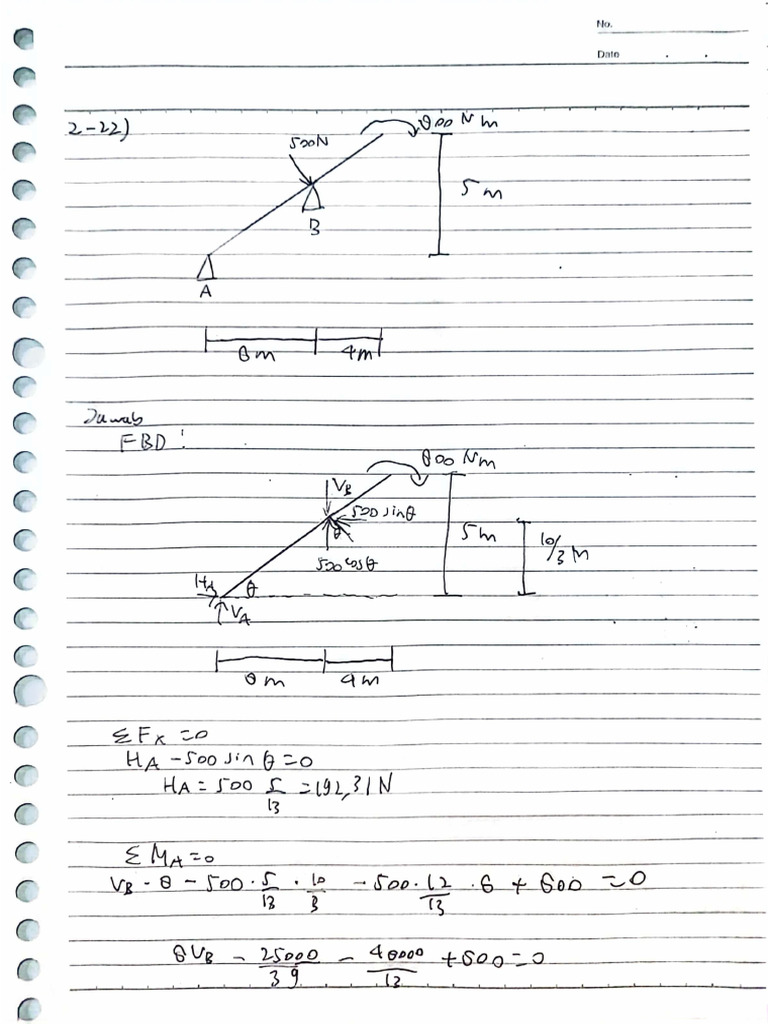 No.
Date
2-22)
800 N m
500N
5 m
B
A
8m 4m
Jawab
FBD :
800 Nm
V_B
500 sin θ
θ
5m
10/3 M
500 cos θ
H_A
θ
V_A
8 m 4m
ΣF_x = 0
H_A - 500 sin θ = 0
H_A = 500 5/13 = 192,31 N
ΣM_A = 0
V_B · 8 - 500 · 5/13 · 10/3 - 500 · 12/13 · 8 + 800 = 0
8V_B - 25000/39 - 48000/13 + 800 = 0